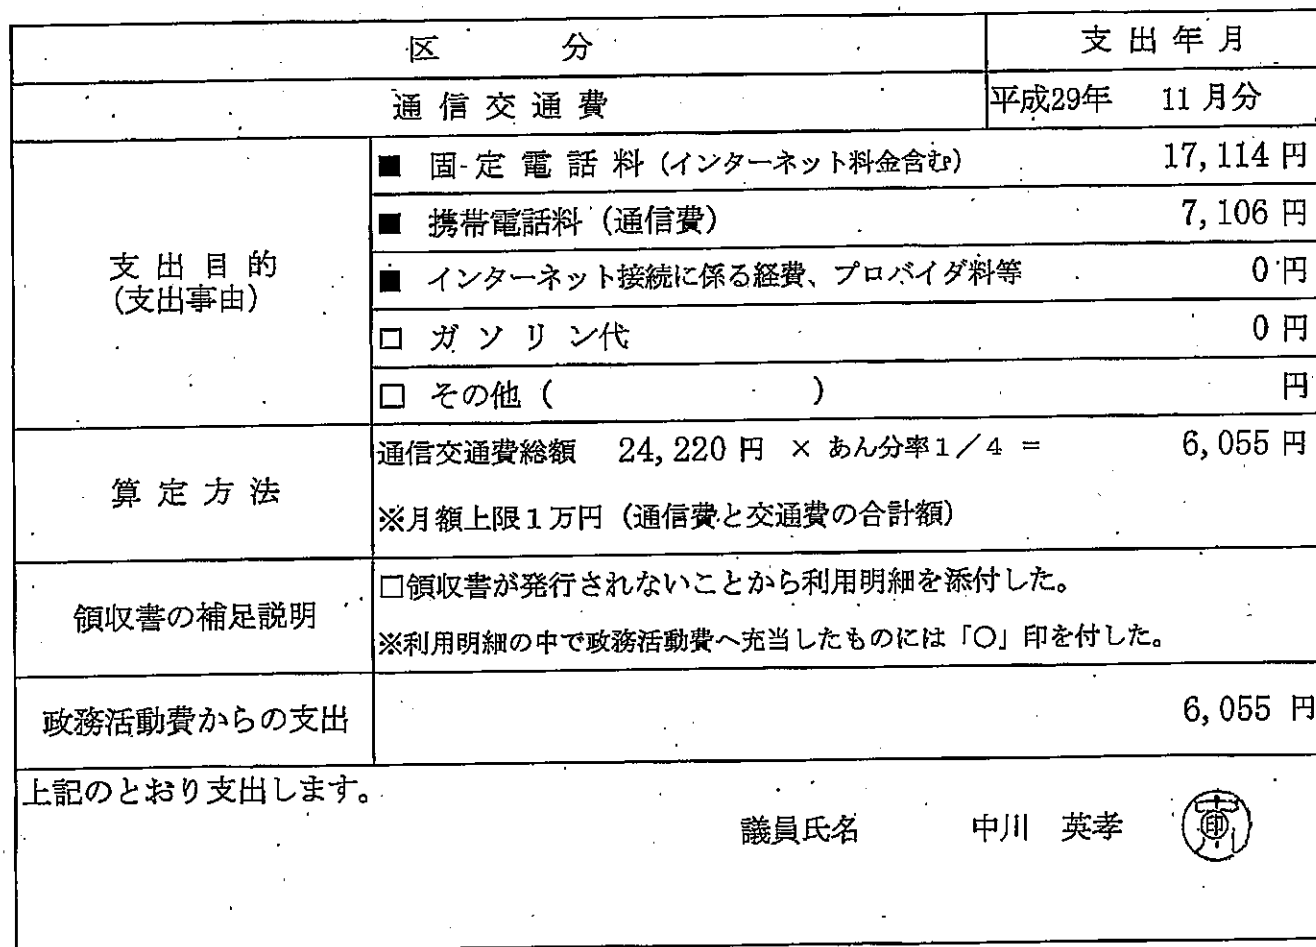 区分 支出年月
通信交通費 平成29年 11月分
■ 固定電話料(インターネット料金含む) 17,114円
■ 携帯電話料(通信費) 7,106円
支出目的
(支出事由)
■ インターネット接続に係る経費、プロバイダ料等 0円
□ ガソリン代 0円
□ その他( ) 円
算定方法
通信交通費総額 24,220円 × あん分率1/4 = 6,055円
※月額上限1万円(通信費と交通費の合計額)
領収書の補足説明
□領収書が発行されないことから利用明細を添付した。
※利用明細の中で政務活動費へ充当したものには「○」印を付した。
政務活動費からの支出 6,055円
上記のとおり支出します。
議員氏名 中川 英孝 印